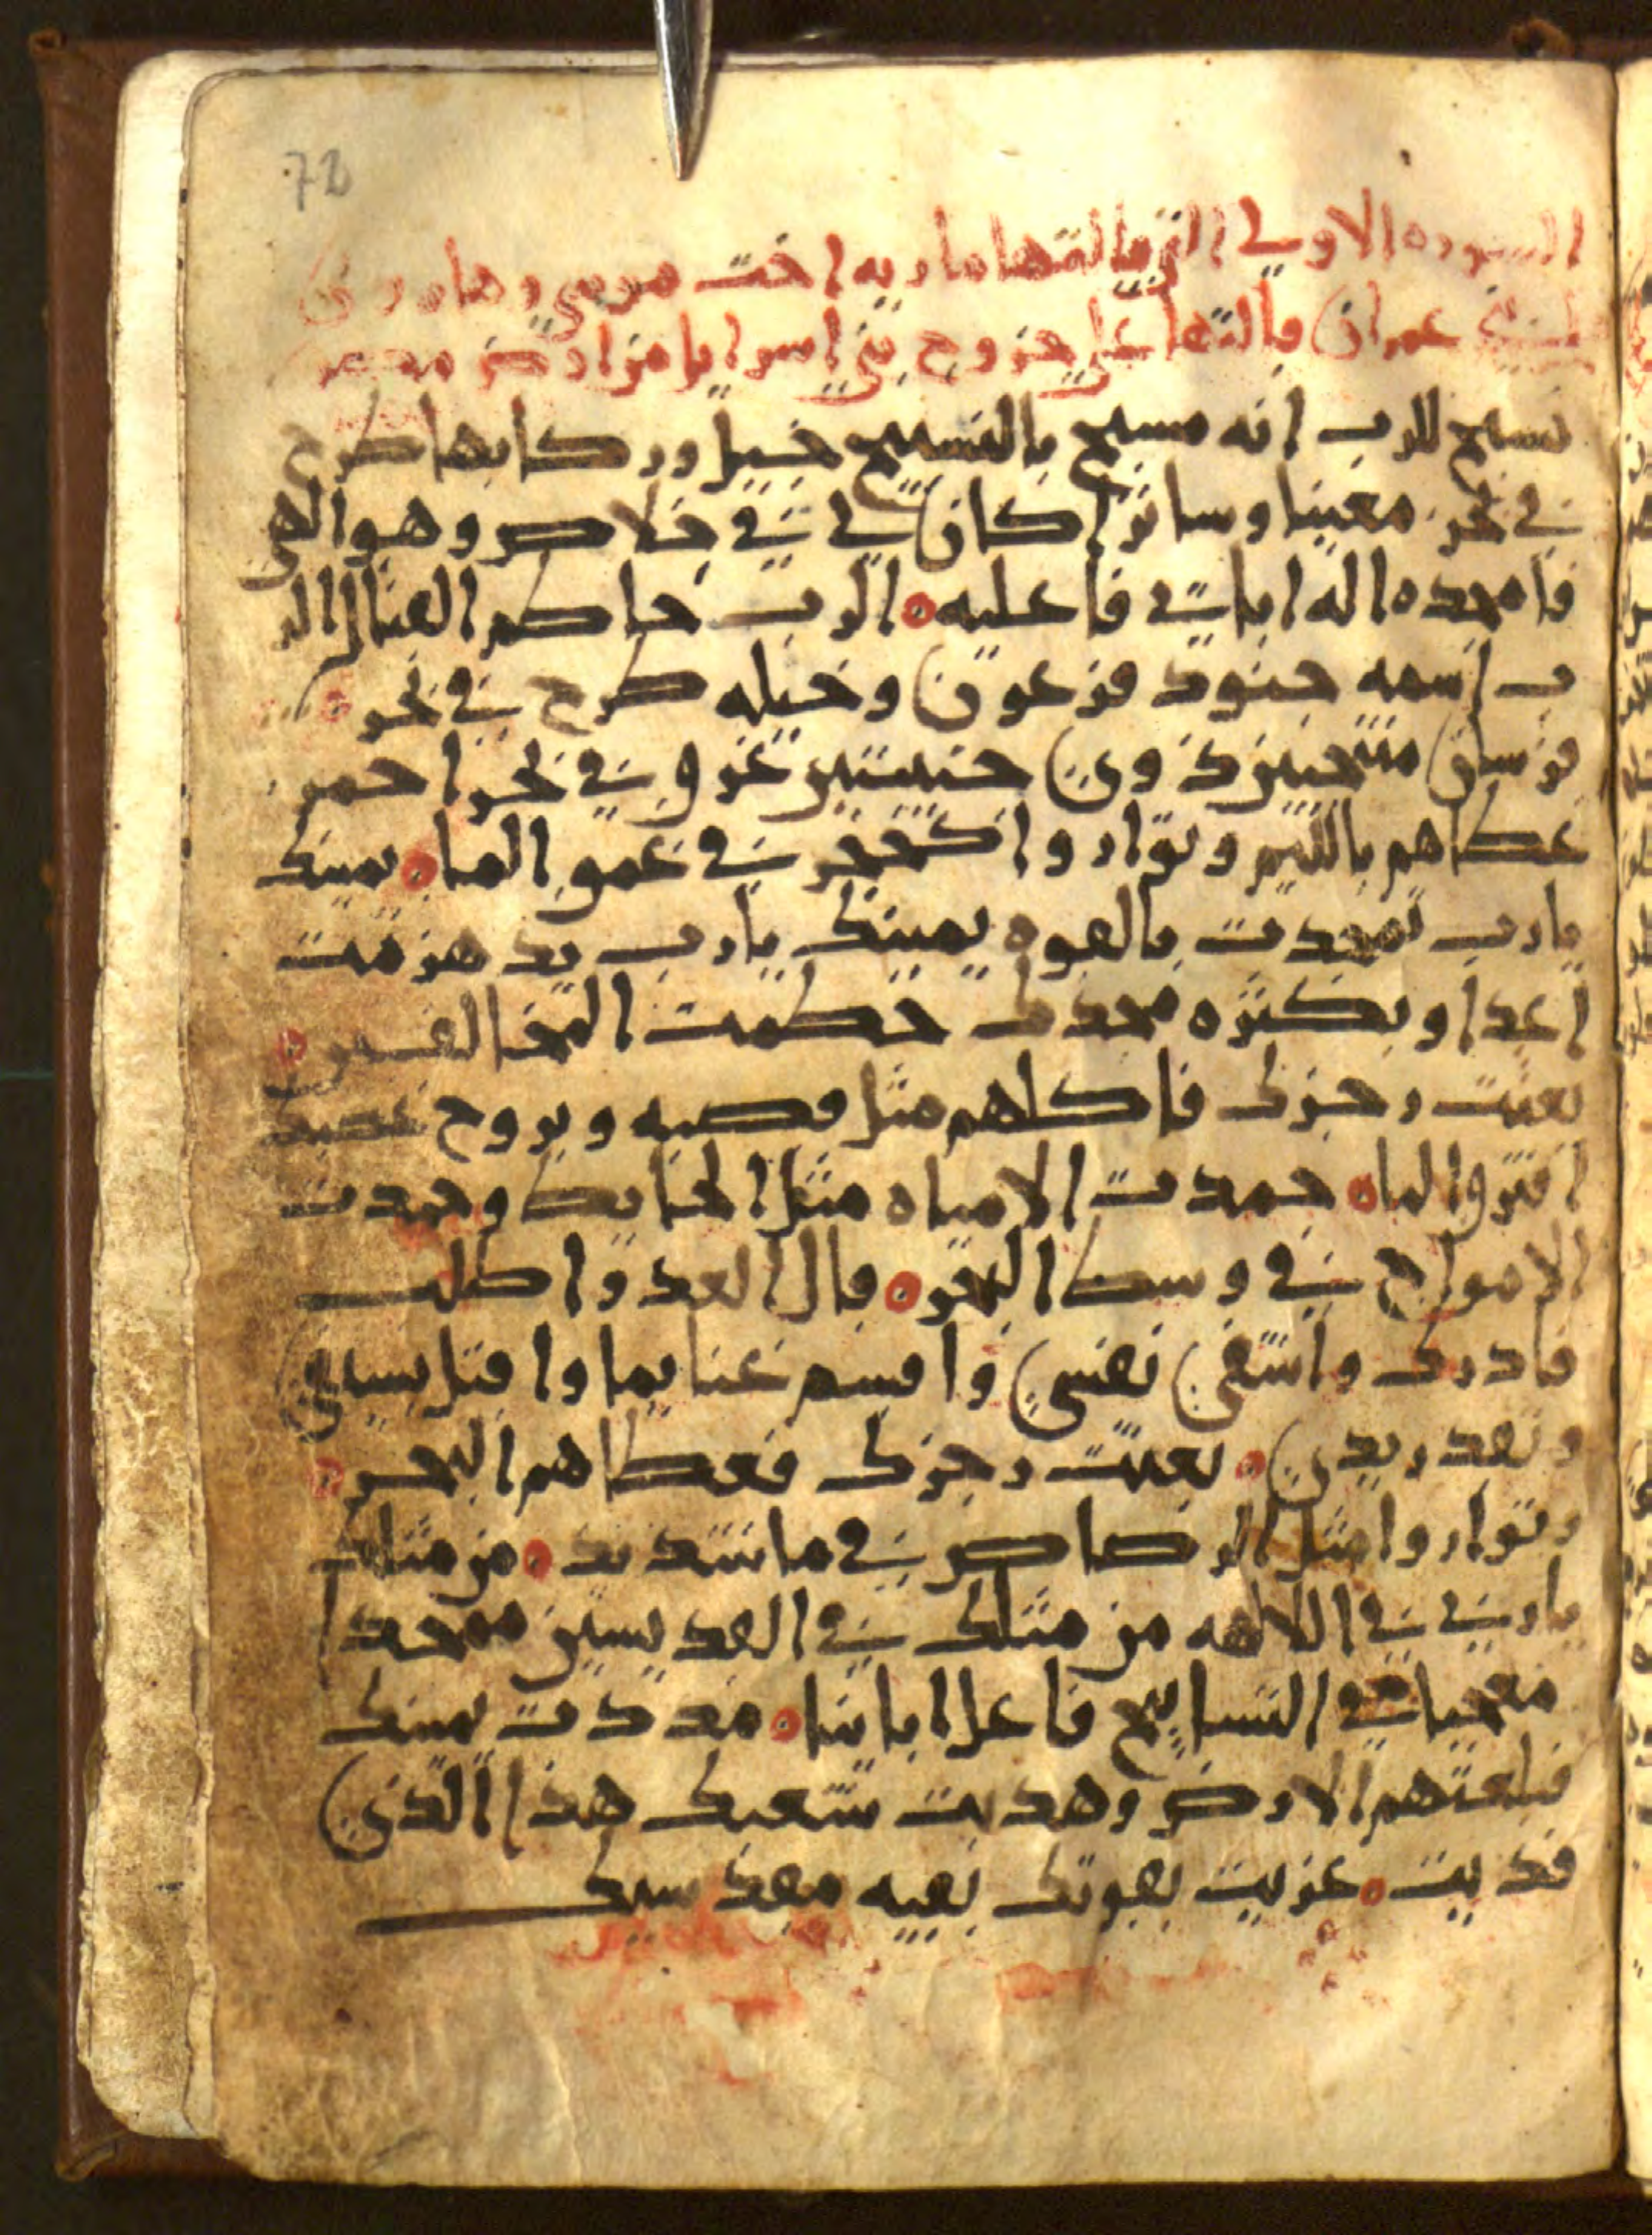 72
السوره الاولى التي قالتها ماريه اخت موسى وهارون
عمران قالتها على خروج بني اسرايل من ارض مصر
نسبح للرب انه مسبح بالتسبيح خيل وركابها طرح
في بحر معينا وساتر اكان لي في خلاص وهو الهي
فامجده اله اباي فاعليه ه الرب حاطم القتال الر
ب اسمه جنود فرعون وخيله طرح في بحر ه
فرسان منتخبين ذوي جنستين غرق في بحر احمر
غطاهم باللج وتواروا كحجر في عمق الماه يمينك
يارب تمجدت بالقوه يمينك يارب يد هزمت
اعدا وبكثره مجدك حطمت المخالفين ه
بعثت رجزك فاكلهم مثل قصبه وبروح غضبك
افترق الماه جمدت الامياه مثل الحايط وجمدت
الامواج في وسط البحر ه قال العدو اطلب
فادرك واشفي نفسي واقسم غنايما واقتل بسيفي
وتقدر يدي ه بعثت رجزك فغطاهم البحر ه
وتواروا مثل الرصاص في ما شديد ه من مثلك
يارب في الالاهه من مثلك في القديسين ممجدا
معجبا في التسابيح فاعل اياتا ه مددت يمينك
فبلعتهم الارض وهديت شعبك هذا الذي
فديت ه عزيت بقوتك بقيه مقدسك